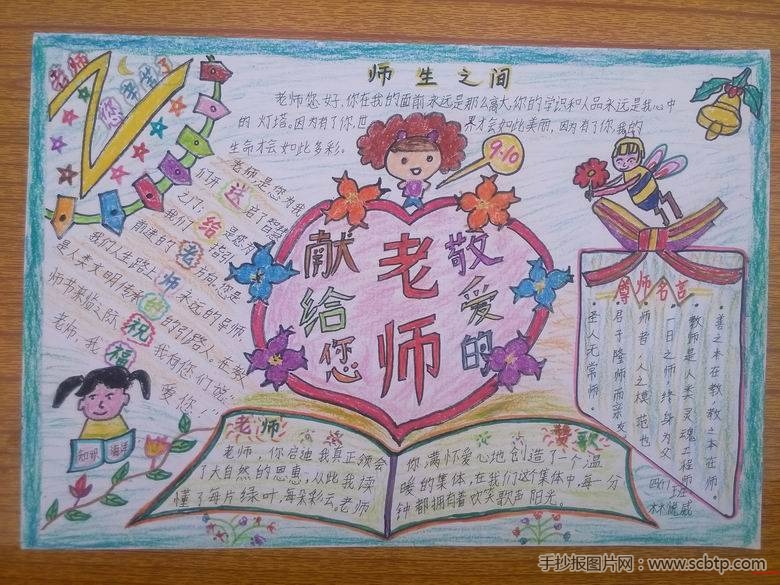 老师
您辛苦了
师生之间
老师您好,你在我的面前永远是那么高大,你的学识和人品永远是我心中
的灯塔。因为有了你,世界才会如此美丽,因为有了你,我的
生命才会如此多彩。
9.10
老师,是您为我
们开启了智慧
之门,是您为
我们指引
前进的方向。您是
我们人生路上永远的导师,
是人类文明传承的引路人。在教
师节来临之际,我有你们说:
老师,我爱您!
送给老师的祝福
献给您
老师
敬爱的
尊师名言
·善之本在教,教之本在师。
·教师是人类灵魂工程师
·一日之师,终身为父
·师者,人之模范也
·君子隆师而亲友
·圣人无常师。
四(1)班
知识海洋
老师
赞歌
老师,你启迪我真正领会
了大自然的恩惠,从此我读
懂了每片绿叶,每朵彩云。老师
你满怀爱心地创造了一个温
暖的集体,在我们这个集体中,每一分
钟都拥有着欢笑歌声阳光。
手抄报图片网:www.scbtp.com